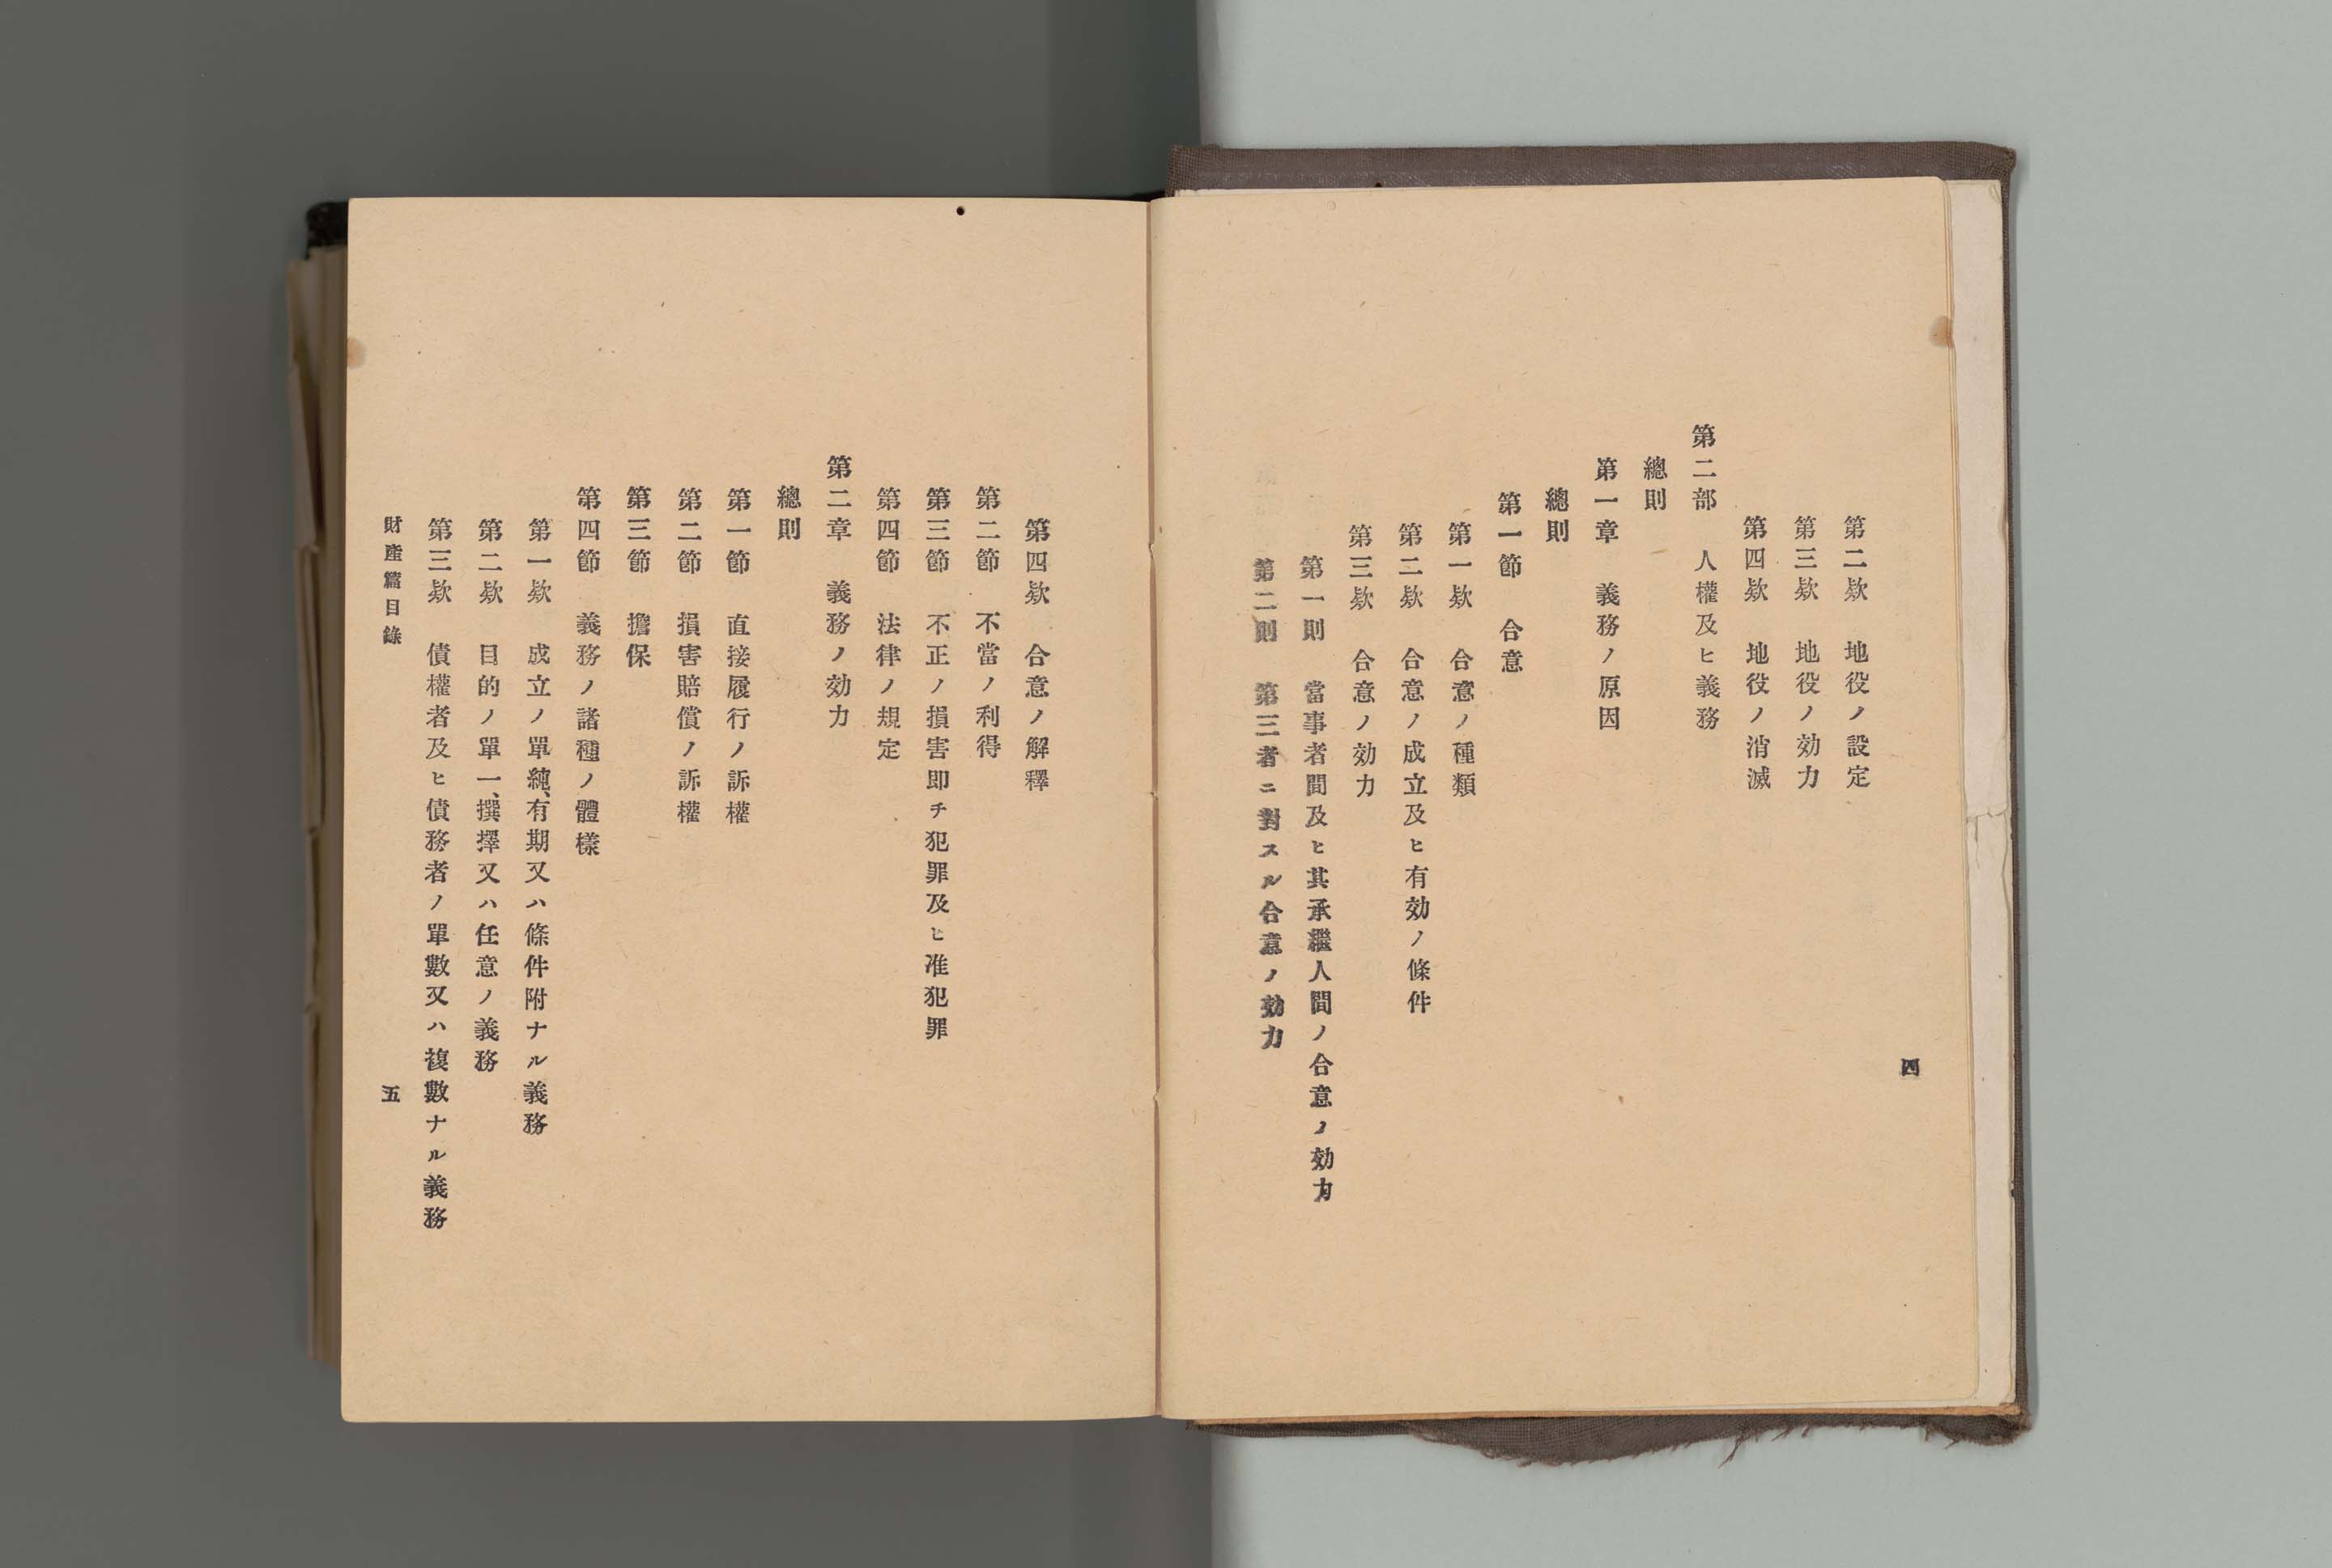 四
第二欵　地役ノ設定
第三欵　地役ノ効力
第四欵　地役ノ消滅
第二部　人權及ヒ義務
總則
第一章　義務ノ原因
總則
第一節　合意
第一欵　合意ノ種類
第二欵　合意ノ成立及ヒ有効ノ條件
第三欵　合意ノ効力
第一則　當事者間及ヒ其承繼人間ノ合意ノ効力
第二則　第三者ニ對スル合意ノ効力
第四欵　合意ノ解釋
第二節　不當ノ利得
第三節　不正ノ損害即チ犯罪及ヒ准犯罪
第四節　法律ノ規定
第二章　義務ノ効力
總則
第一節　直接履行ノ訴權
第二節　損害賠償ノ訴權
第三節　擔保
第四節　義務ノ諸種ノ體樣
第一欵　成立ノ單純、有期又ハ條件附ナル義務
第二欵　目的ノ單一、撰擇又ハ任意ノ義務
第三欵　債權者及ヒ債務者ノ單數又ハ複數ナル義務
財產篇目錄
五